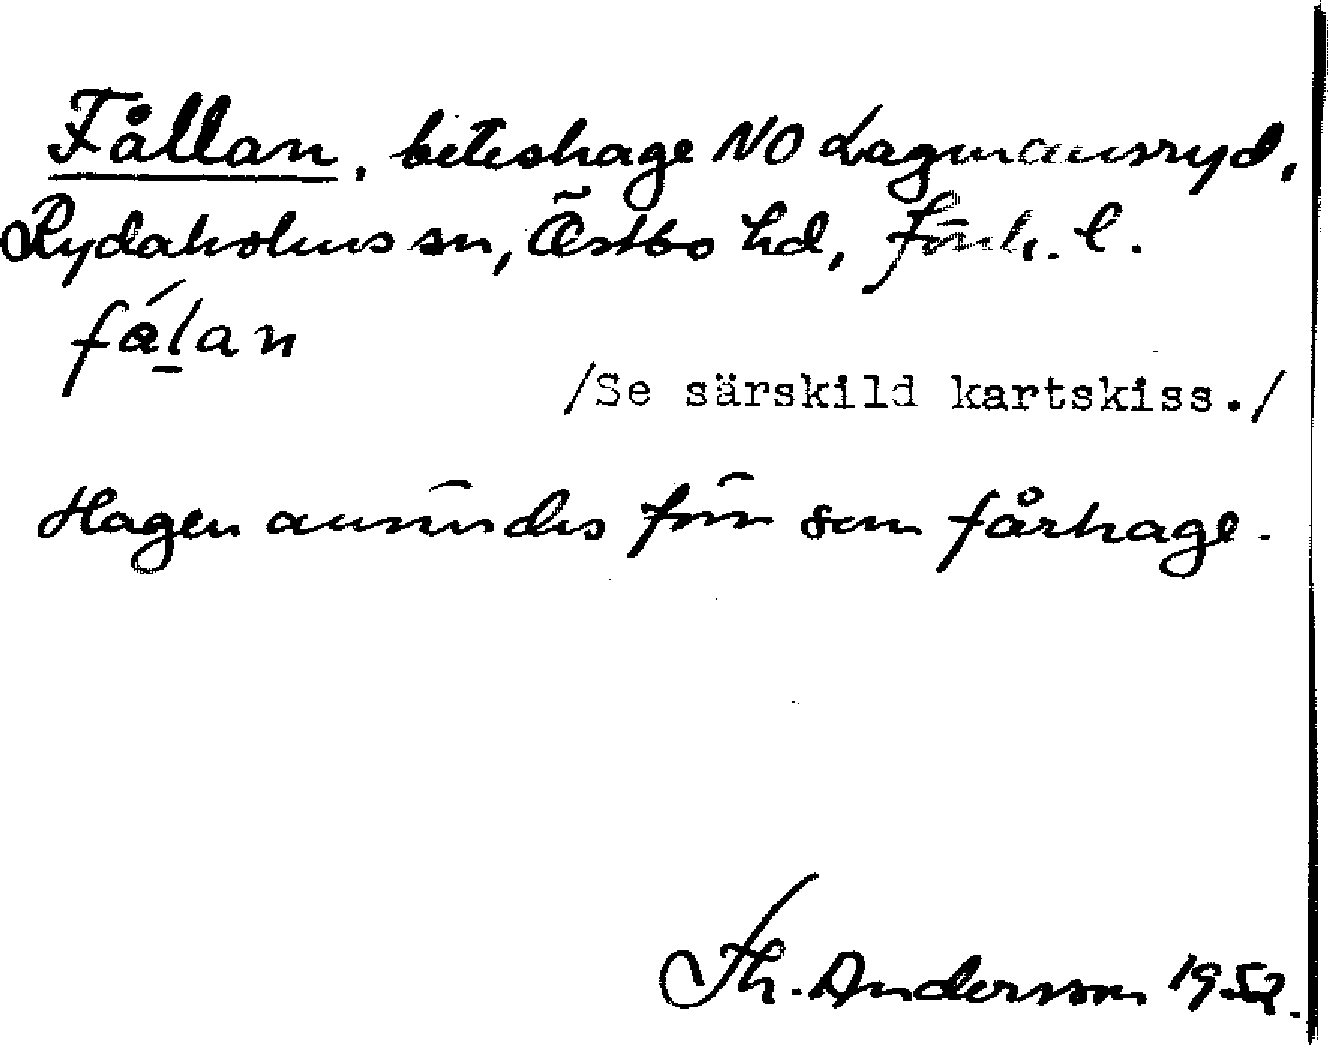 Fållan, beteshage NO Lagmansryd,
Rydaholms sn, Östbo hd, Jönk. l.
fålan
/Se särskild kartskiss./
Hagen användes förr som fårhage.
Th. Andersson 1952.